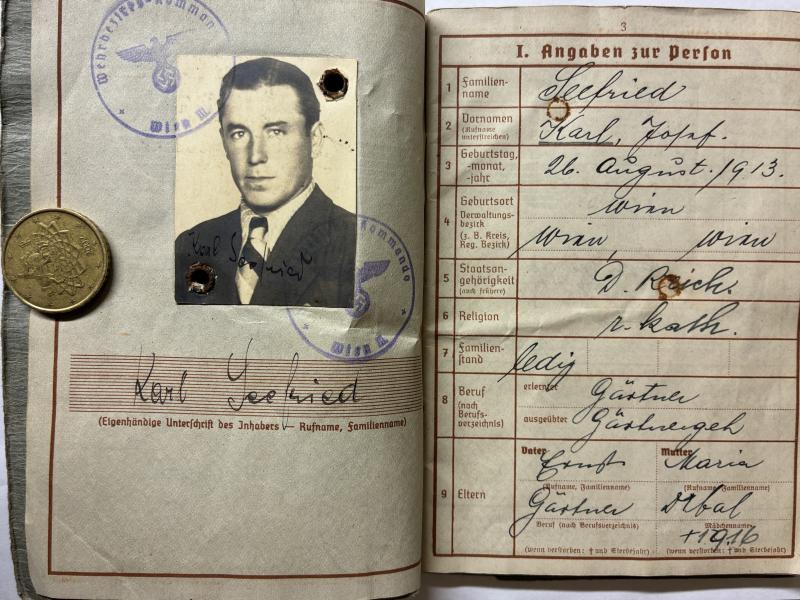 Wehrbezirks-Komman
Wien III
Karl Seefried
Kommando
Wien III
Karl Seefried
(Eigenhändige Unterschrift des Inhabers — Rufname, Familienname)
3
I. Angaben zur Person
1 Familien-
name
Seefried
2 Vornamen
(Rufname
unterstreichen)
Karl, Josef.
3 Geburtstag,
-monat,
-jahr
26. August. 1913.
4 Geburtsort
Verwaltungs-
bezirk
(z. B. Kreis,
Reg. Bezirk)
Wien
Wien, Wien
5 Staatsan-
gehörigkeit
(auch frühere)
D. Reich.
6 Religion
r. kath.
7 Familien-
stand
ledig
8 Beruf
(nach
Berufs-
verzeichnis)
erlernter Gärtner
ausgeübter Gärtnergeh
9 Eltern
Vater Mutter
Ernst Maria
(Rufname, Familienname) (Rufname, Familienname)
Gärtner
Beruf (nach Berufsverzeichnis) Mädchenname
+1916
(wenn verstorben: † und Sterbejahr) (wenn verstorben: † und Sterbejahr)